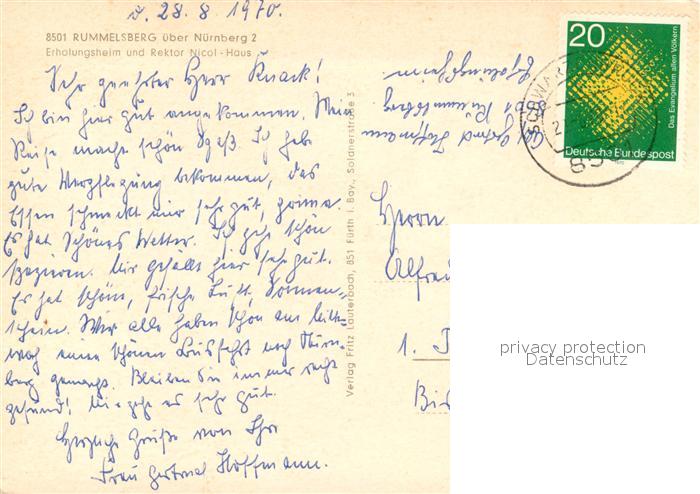 d. 28.8.1970.
8501 RUMMELSBERG über Nürnberg 2
Erholungsheim und Rektor Nicol-Haus
Sehr geehrter Herr Knack!
Ich bin hier gut angekommen. Mein
Reise mache schön Spaß. Ich habe
gute Verpflegung bekommen, das
Essen schmeckt mir sehr gut, prima
Es hat Schönes Wetter. Ich gehe schön
spazieren. Mir gefällt hier sehr gut.
Es hat schön, frische Luft, Sonnen-
schein. Wir alle haben schon am Mitt-
woch eine schönen Busfahrt nach Nürn-
berg gemacht. Bleiben Sie immer recht
gesund! Mir geht es sehr gut.
Herzliche Grüße von Ihr
Frau Gertrud Hoffmann.
Verlag Fritz Lauterbach, 851 Fürth i. Bay., Soldnerstraße 3
Gertrud Hoffmann
Rummelsberg
Erholungsheim
20
Das Evangelium allen Völkern
Deutsche Bundespost
SCHWARZ
85
Herrn
Alfred
1.
privacy protection
Datenschutz